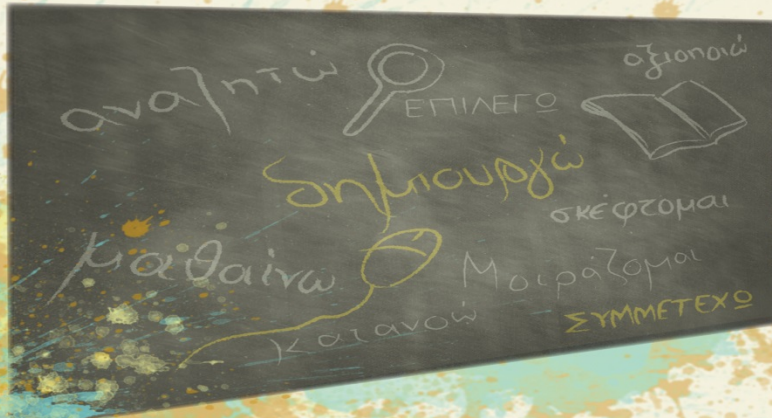 αναζητώ
ΕΠΙΛΕΓΩ
αξιοποιώ
δημιουργώ
σκέφτομαι
μαθαίνω
Μοιράζομαι
κατανοώ
ΣΥΜΜΕΤΕΧΩ